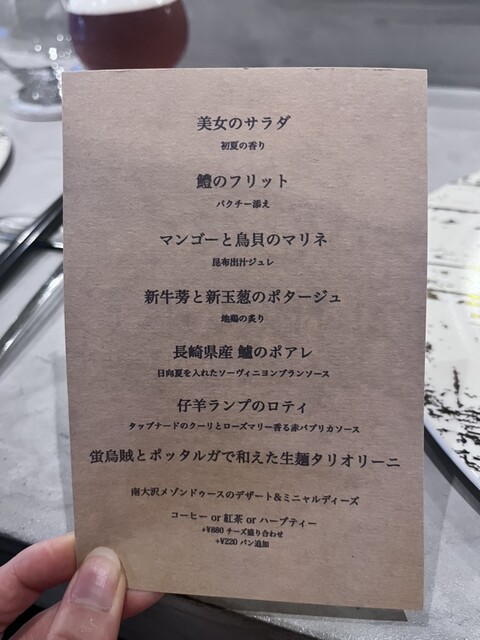 美女のサラダ
初夏の香り
鱧のフリット
パクチー添え
マンゴーと鳥貝のマリネ
昆布出汁ジュレ
新牛蒡と新玉葱のポタージュ
地鶏の炙り
長崎県産 鱸のポアレ
日向夏を入れたソーヴィニヨンブランソース
仔羊ランプのロティ
タップナードのクーリとローズマリー香る赤パプリカソース
蛍烏賊とボッタルガで和えた生麺タリオリーニ
南大沢メゾンドゥースのデザート&ミニャルディーズ
コーヒー or 紅茶 or ハーブティー
+¥880 チーズ盛り合わせ
+¥220 パン追加